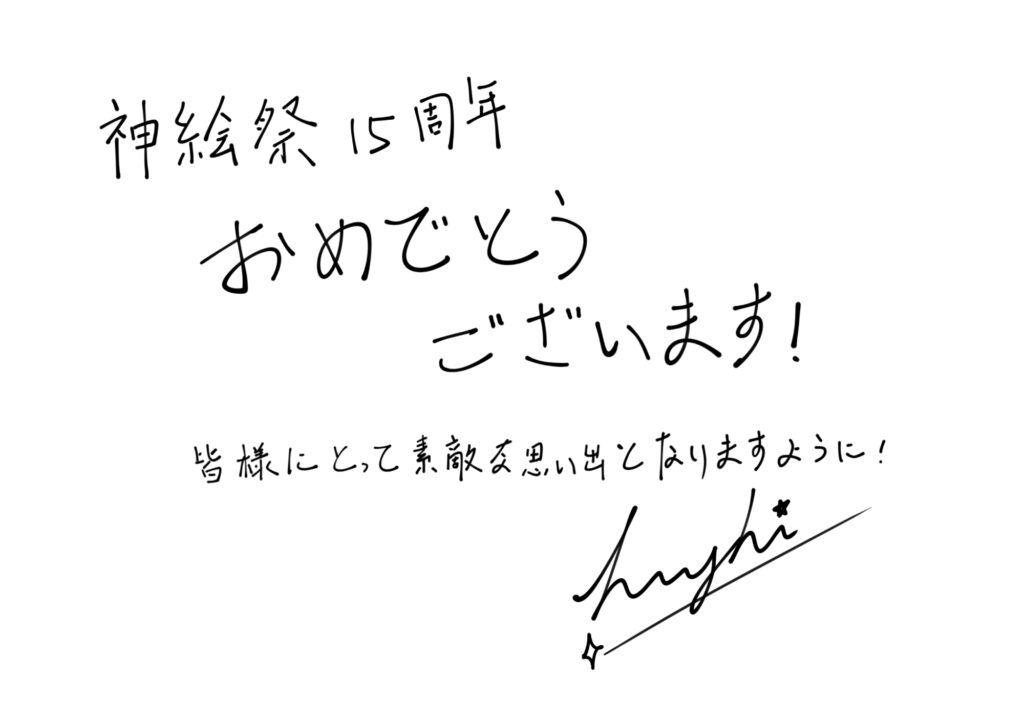 神絵祭 15周年
おめでとう
ございます!
皆様にとって素敵な思い出となりますように!